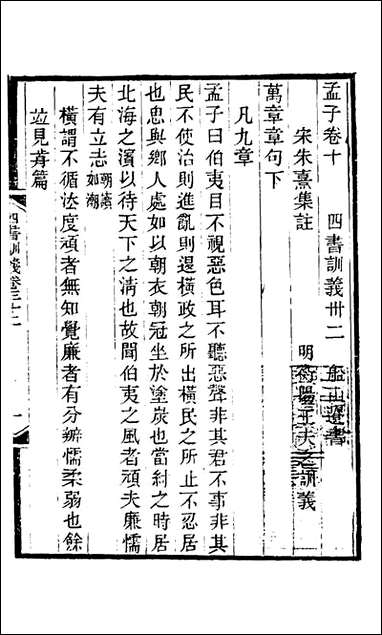 孟子卷十　四書訓義卅二　船山遺書
宋朱熹集註　明衡陽王夫之訓義
萬章章句下
凡九章
孟子曰伯夷目不視惡色耳不聽惡聲非其君不事非其
民不使治則進亂則退橫政之所出橫民之所止不忍居
也思與鄉人處如以朝衣朝冠坐於塗炭也當紂之時居
北海之濱以待天下之淸也故聞伯夷之風者頑夫廉懦
夫有立志朝濵如潮
橫謂不循法度頑者無知覺廉者有分辨懦柔弱也餘
竝見前篇
四書訓義卷三十二　一